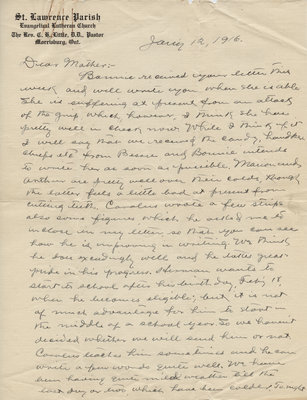 St. Lawrence Parish
Evangelical Lutheran Church
The Rev. C. H. Little, D.D., Pastor
Morrisburg, Ont.
Jany 12, 1916.
Dear Mother:-
Bonnie received your letter this
week and will write you when she is able.
She is suffering at present from an attack
of the grip which, however, I think she has
pretty well in check now. While I think of it
I will say that we received the candy, handker-
chiefs etc from Bessie and Bonnie intends
to write her as soon as possible. Marion and
Arthur are pretty well over their colds, though
the latter feels a little bad at present from
cutting teeth. Carolus wrote a few strips
also some figures which he asked me to
inclose in my letter so that you can see
how he is improving in writing. We think
he does exceedingly well and he takes great
pride in his progress. Herman wants to
start to school after his birthday, Feby 18,
when he becomes eligible; but it is not
of much advantage for him to start in
the middle of a school year. So we haven't
decided whether we will send him or not.
Carolus teaches him sometimes and he can
write a few words quite well. We have
been having quite mild weather till the
last day or two which have been colder. To-night